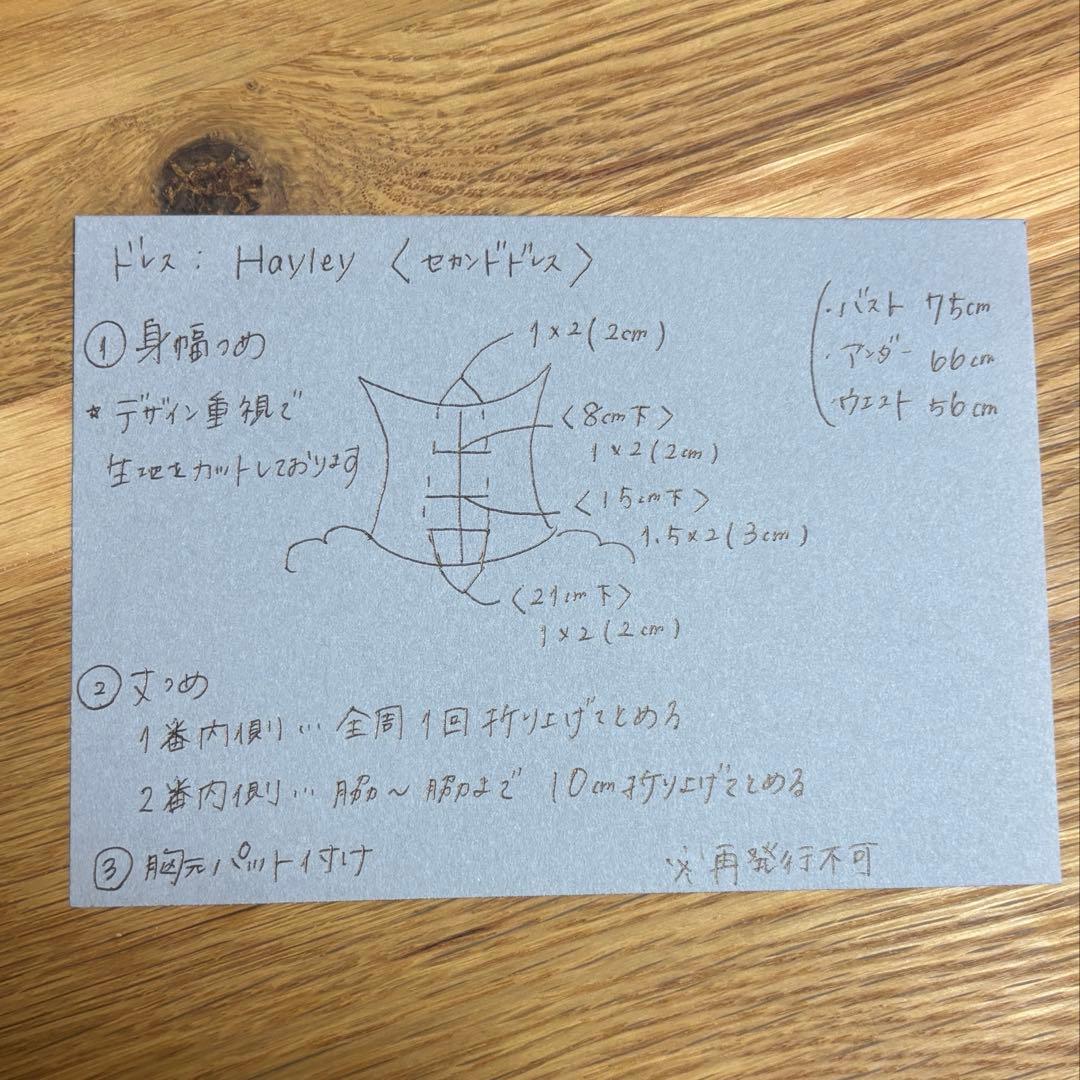 ドレス： Hayley 〈セカンドドレス〉
・バスト 75cm
・アンダー 66cm
・ウエスト 56cm
① 身幅つめ
☆ デザイン重視で
生地をカットしております
1×2(2cm)
〈8cm下〉
1×2(2cm)
〈15cm下〉
1.5×2(3cm)
〈21cm下〉
1×2(2cm)
② 丈つめ
1番内側… 全周1回折り上げてとめる
2番内側… 脇〜脇まで 10cm折り上げてとめる
③ 胸元パット付け
※再発行不可